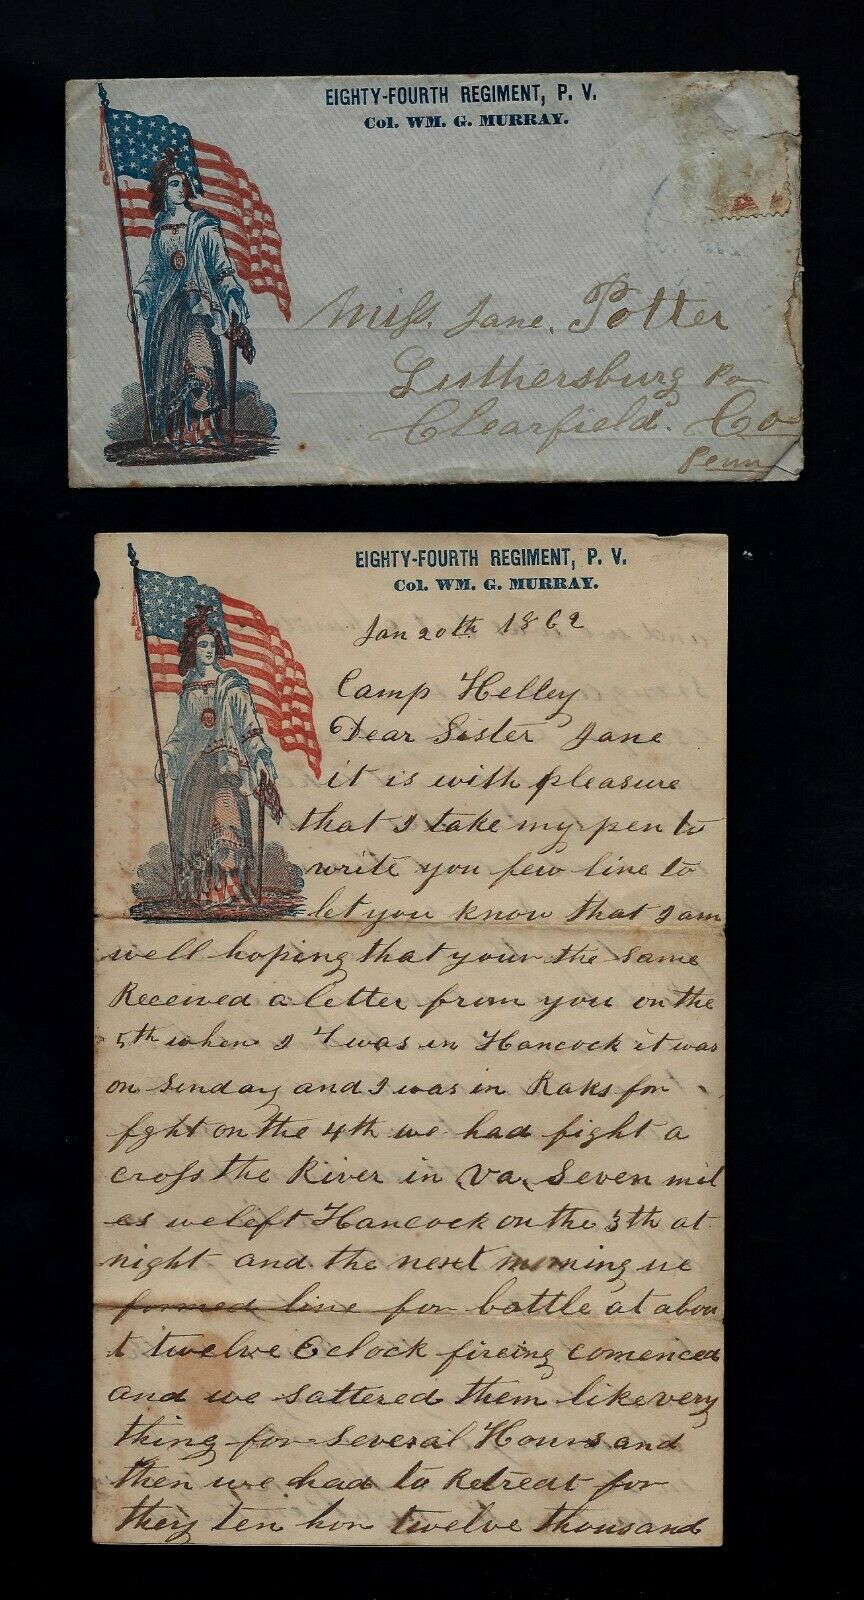 EIGHTY-FOURTH REGIMENT, P. V.
Col. WM. G. MURRAY.
Miss. Jane. Potter
Luthersburg Pa
Clearfield. Co
Penn
EIGHTY-FOURTH REGIMENT, P. V.
Col. WM. G. MURRAY.
Jan 20th 1862
Camp Helley
Dear Sister Jane
it is with pleasure
that I take my pen to
write you few line to
let you know that I am
well hoping that your the same
Received a letter from you on the
5th when I was in Hancock it was
on Sunday and I was in Raks for
fght on the 4th we had fight a
cross the River in Va. Seven mil
es we left Hancock on the 3th at
night and the next morning we
formed line for battle at abou
t twelve Oclock fireing comenced
and we sattered them like very
thing for several Hours and
then we had to Retreat for
they ten hor twelve thousand